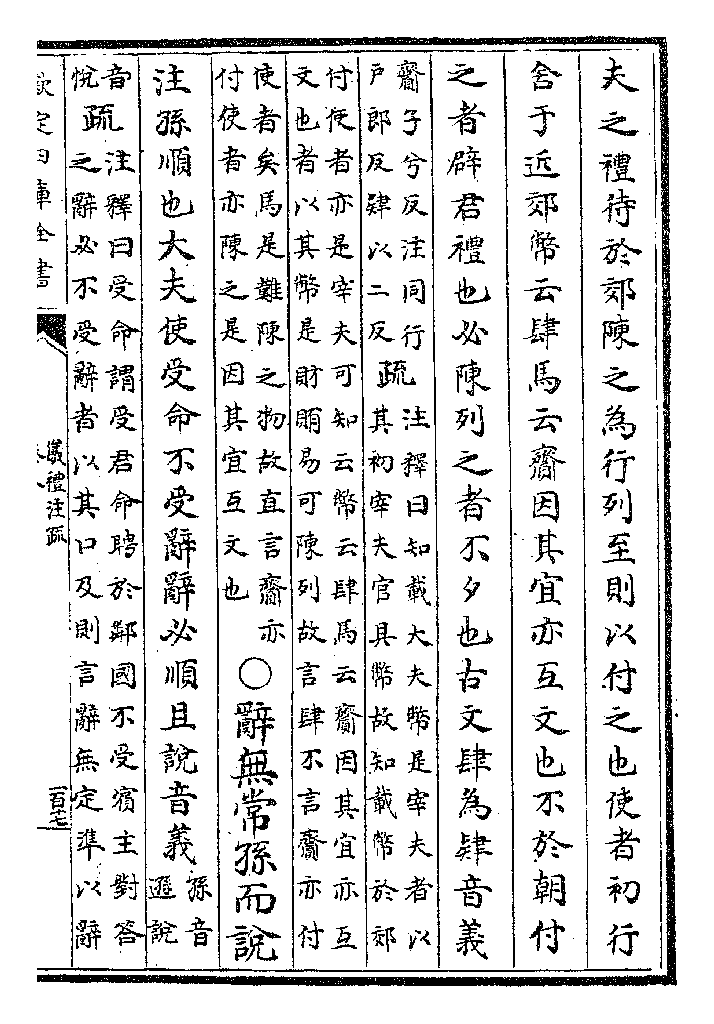 夫之禮待於郊陳之為行列至則以付之也使者初行
舍于近郊幣云肆馬云齎因其宜亦互文也不於朝付
之者辟君禮也必陳列之者不夕也古文肆為肄音義
齎子兮反注同行
户郎反肄以二反
疏
注釋曰知載大夫幣是宰夫者以
其初宰夫官具幣故知載幣於郊
付使者亦是宰夫可知云幣云肆馬云齎因其宜亦互
文也者以其幣是財賄易可陳列故言肆不言齎亦付
使者矣馬是難陳之物故直言齎亦
付使者亦陳之是因其宜互文也
○辭無常孫而說
注孫順也大夫使受命不受辭辭必順且說音義
孫音
遜說
音
悅
疏
注釋曰受命謂受君命聘於鄰國不受賓主對答
之辭必不受辭者以其口及則言辭無定準以辭
欽定四庫全書
儀禮注疏